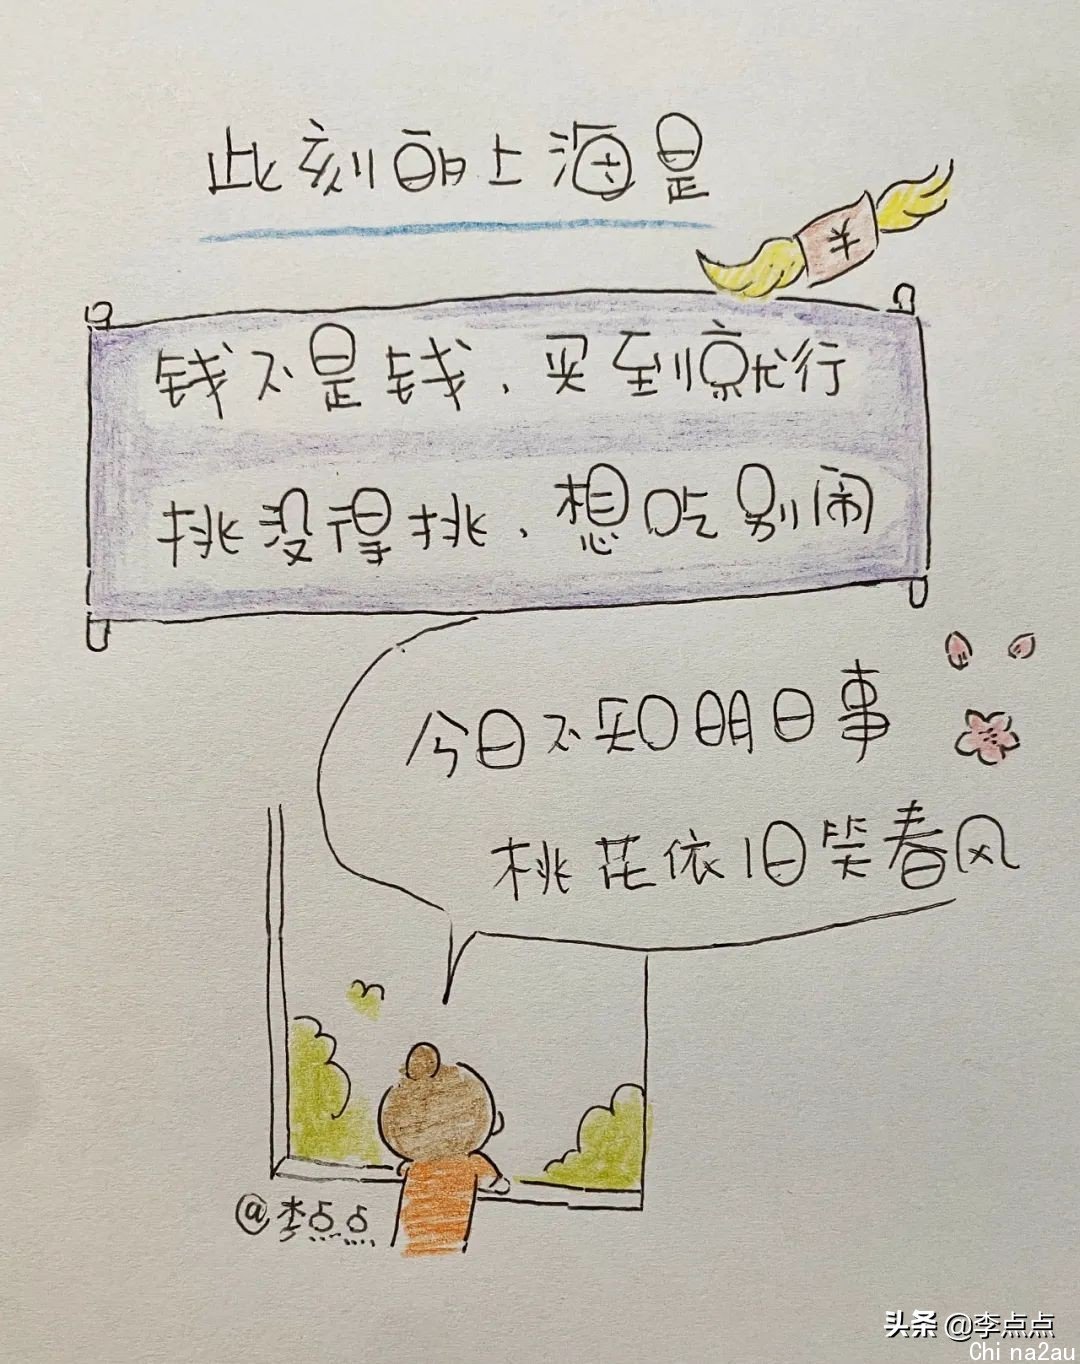 此刻的上海是
¥
钱不是钱，买到就行
挑没得挑，想吃别闹
今日不知明日事
桃花依旧笑春风
@李点点
头条 @李点点
Chi na2au